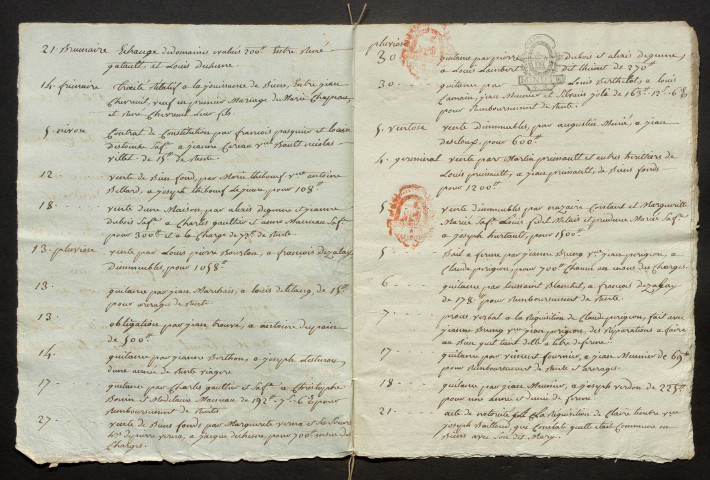 21. Brumaire Echange de domaines valais 200# Entre René
gatault, et Louis duhesme
14. frimaire traité relatif a la jouissance de Biens, Entre jean
Chereuil, veuf en premier Mariage de Marie Chapeau,
et René Chereuil leur fils
5. nivose Contrat de Constitution par francois pasquier et
sa fe. a jeanne Cereau Ve. nicolas
villet de 15# de Rente
12 vente de Bien fond, par Marie thibouf Ve. antoine
Bellard, a joseph thibouf pour 109#
18 vente d'une Maison par alexis degenne et jeanne
dubois sa fe. a Charles gaultier et anne Mauneau sa fe.
pour 300# et a la Charge de 72# de Rente
13. pluviose vente par Louis pierre Bourbon, a francois Dezalay
d'immeubles, pour 1058#
13. quittance par jean Marchais, a louis de 15#
pour arrerages de Rente
13 obligation par jean trouvé, a antoine dupain
de 500#
14. quittance par jeanne Berthon, a joseph
d'une année de Rente viagere
17 quittance par Charles gaultier et sa fe. a Christophe
Bonin et Madelaine Mauneau de 192# 7s 6d pour
Remboursement de Rente
27 vente de Biens fonds par Marguerite verna et
de pierre verna, a jacques duchesne, pour 700# en sus des
Charges.
pluviose
30 quittance par pierre dubois et alexis degenne,
a Louis Lambert dit de 270#
30 quittance par Louis Berthelot, a louis
jean Meunier et de 163# 13s 6d
pour Remboursement de Rente
5. ventose vente d'immeubles, par augustin Marié, a jean
pour 600#
4. germinal vente par Martin prunault et autres heritiers de
Louis prunault, a jean prunault, de Biens fonds
pour 1200#
5 vente d'immeubles par nazaire Constant et Marguerite
Marié sa fe. Louis et prudence Marié sa fe.
a joseph hurtault, pour 1500#
5 Bail a ferme par jeanne Brung Ve. jean perigon, a
Claude perigon, pour 700# Chacun en sus des Charges.
6 quittance par toussaint Blanchet, a francois dezalay
de 178# pour Remboursement de Rente.
7 proces verbal a la Requisition de Claude perigon, fait avec
jeanne Brung Ve. jean perigon, des Réparations a faire
au Bien qu'il tient d'elle a titre de ferme.
17 quittance par vincent fournier, a jean Meunier de 69#
pour Remboursement de Rente et arrerages.
18 quittance par jean Meunier, a joseph verdon de 225#
pour une année et demie de ferme
21 acte de notorieté fait a la Requisition de Claire Ve.
joseph Baillaud, qui Constate quelle etait Commune en
Biens avec son dit Mary.